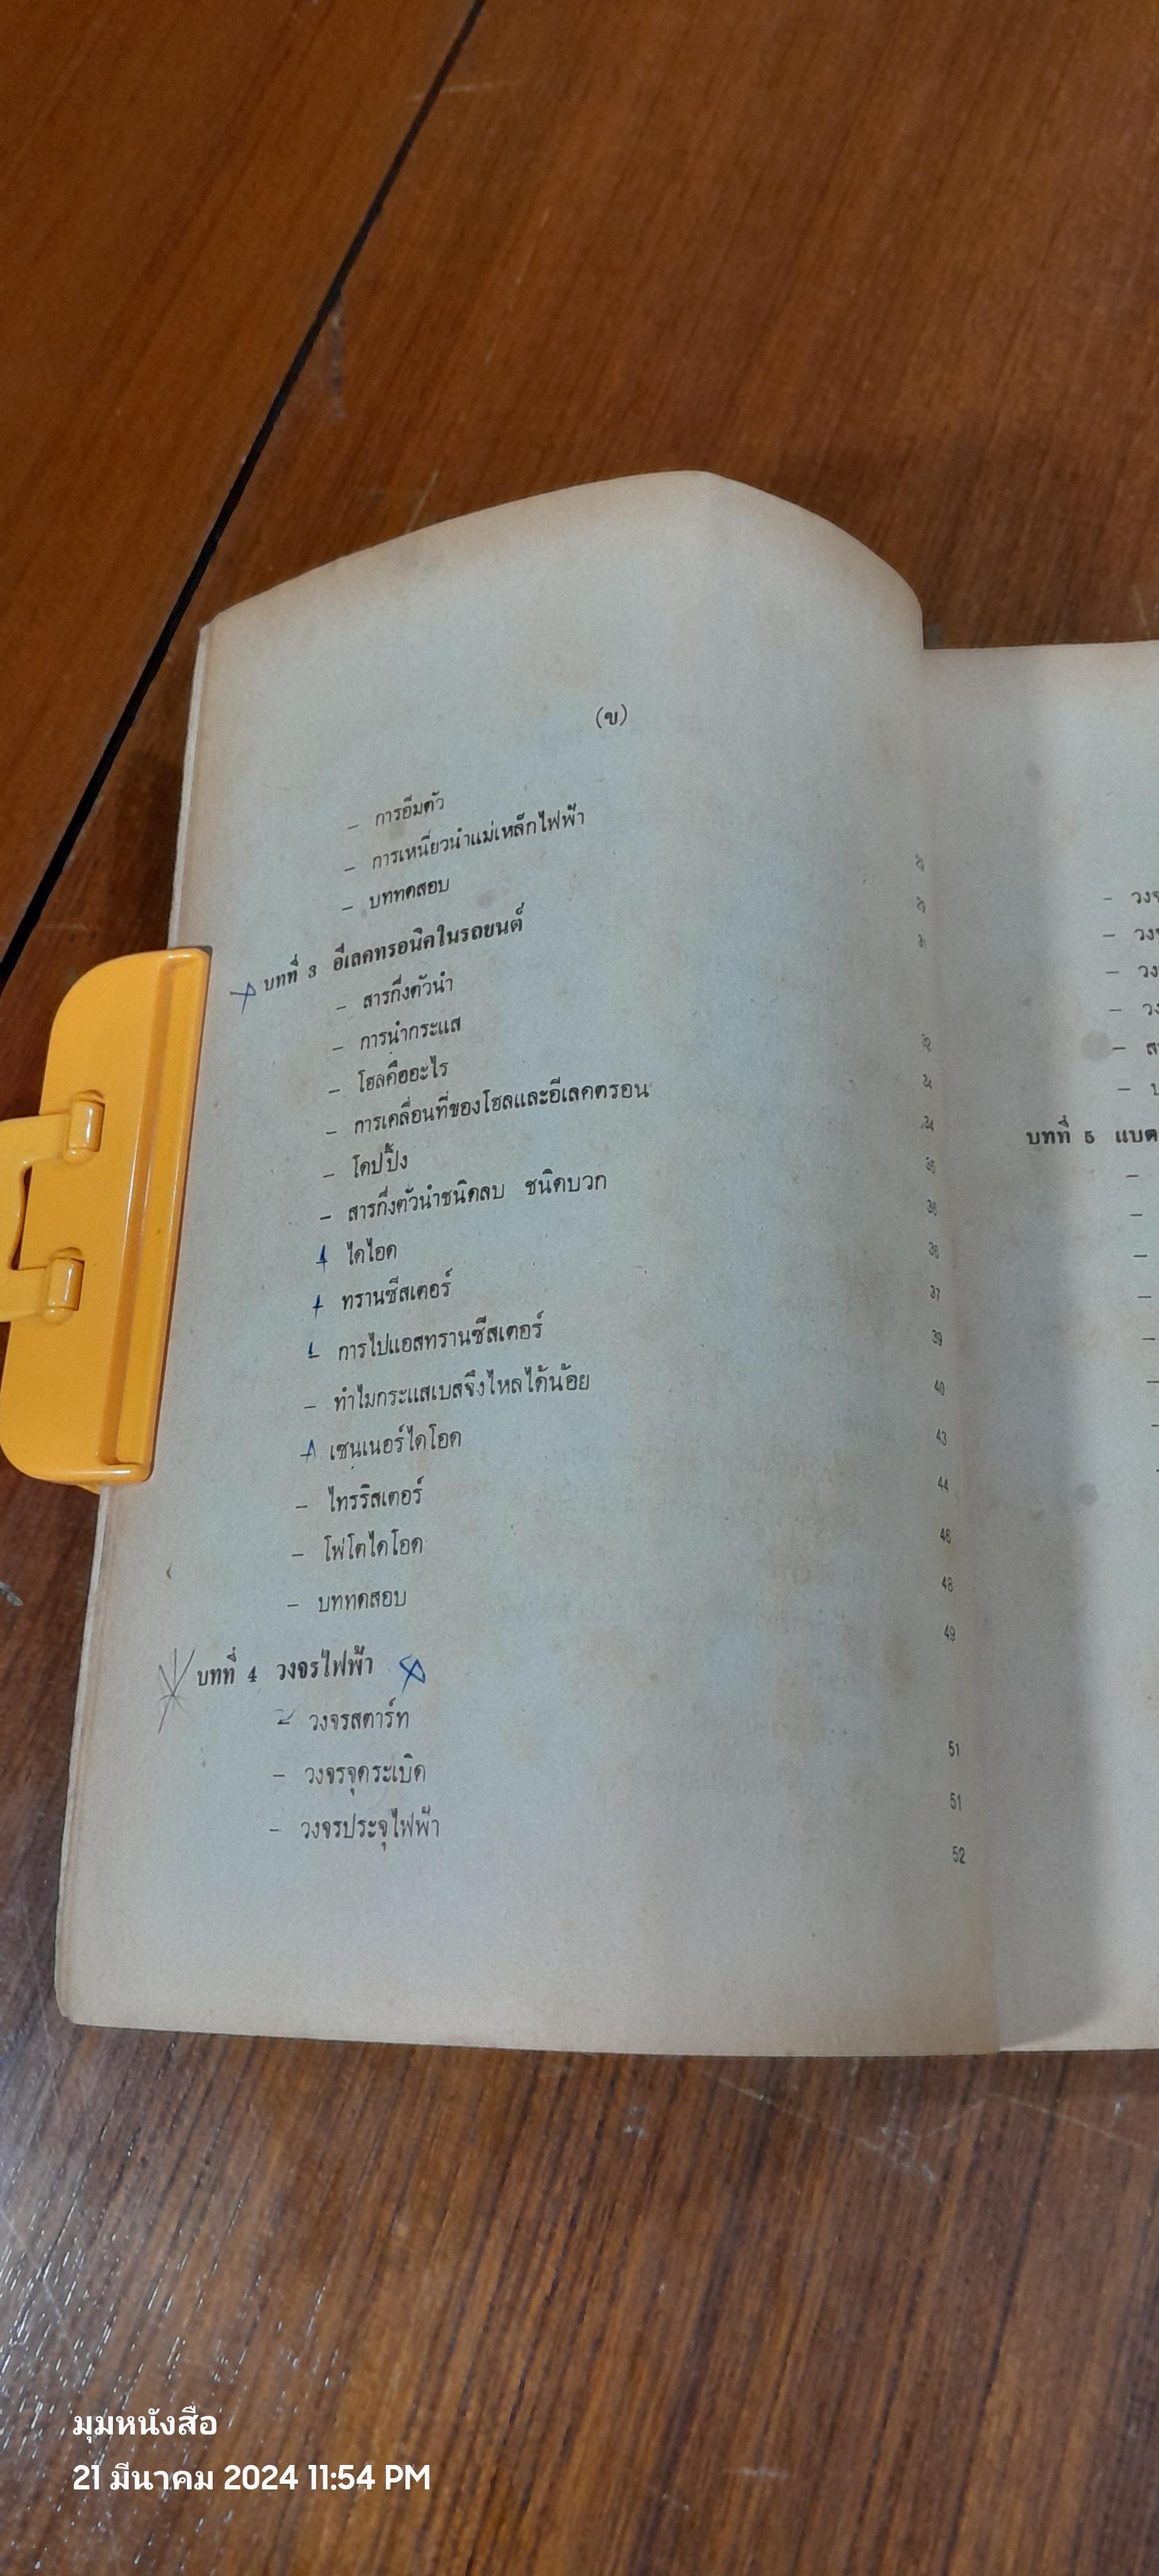 (ข)
– การอิ่มตัว
– การเหนี่ยวนำแม่เหล็กไฟฟ้า
– บททดสอบ
บทที่ 3 อีเลคทรอนิคในรถยนต์
– สารกึ่งตัวนำ 32
– การนำกระแส
– โฮลคืออะไร 34
– การเคลื่อนที่ของโฮลและอีเลคตรอน 35
– โดปปิ้ง 36
– สารกึ่งตัวนำชนิดลบ ชนิดบวก 36
– ไดโอด 37
– ทรานซีสเตอร์ 39
– การไปแอสทรานซีสเตอร์ 40
– ทำไมกระแสเบสจึงไหลได้น้อย 43
– เซนเนอร์ไดโอด 44
– ไทรริสเตอร์ 46
– โฟโตไดโอด 48
– บททดสอบ 49
บทที่ 4 วงจรไฟฟ้า
– วงจรสตาร์ท 51
– วงจรจุดระเบิด 51
– วงจรประจุไฟฟ้า 52
บทที่ 5
มุมหนังสือ
21 มีนาคม 2024 11:54 PM